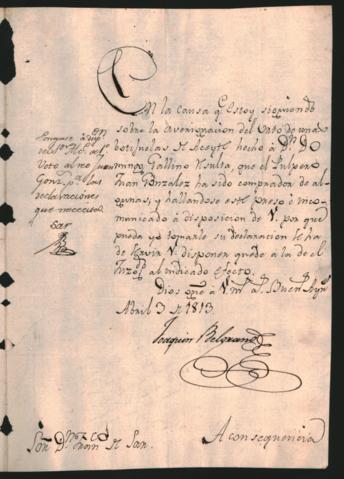 En la causa q.e estoy siguiendo
sobre la averiguacion del Robo de unas
botijuelas de Aceyte hecho à D.n Do
mingo Gallino resulta, que el Pulpero
Juan Gonzalez ha sido comprador de al
gunas, y hallandose este preso è inco
municado à disposicion de V. por que
pueda yo tomarle su declaracion se ha
de servir V. disponer quede à la de el
Juzg.do al indicado efecto.
Dios gue à V. m.s a.s Buen.s Ay.s
Abril 3 de 1813.
Joaquin Belgrano
Pongase à disp.on
del S.or Alc.e de 1.r
Voto al reo Juan
Gonz.z p.a las
declaraciones
que necesita
Sor D.n
de San.
A consequencia